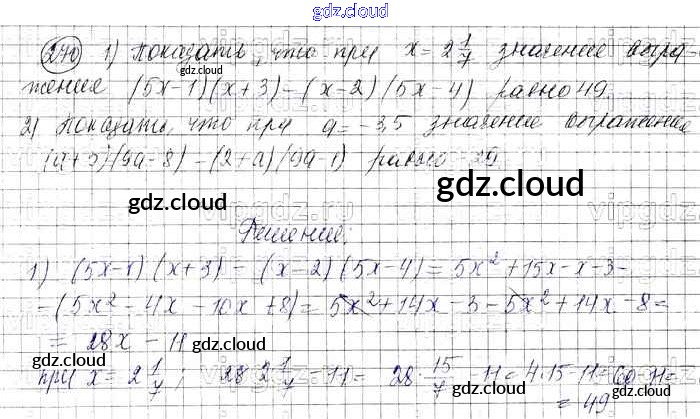 gdz.cloud
270) 1) Показать, что при x = 2 1/7 значение выра-
жение (5x-1)(x+3) - (x-2)(5x-4) равно 49.
gdz.cloud
2) Показать, что при a = -3,5 значение выражение
(a+3)(9a-8) - (2+a)(9a-1) равно -29
gdz.cloud
gdz.cloud
vipgdz.ru
Решение:
1) (5x-1)(x+3) - (x-2)(5x-4) = 5x² + 15x - x - 3 -
- (5x² - 4x - 10x + 8) = 5x² + 14x - 3 - 5x² + 14x - 8 =
= 28x - 11
gdz.cloud
gdz.cloud
при x = 2 1/7; 28·2 1/7 - 11 = 28 · 15/7 - 11 = 4·15 - 11 = 60 - 11 =
= 49
gdz.cloud